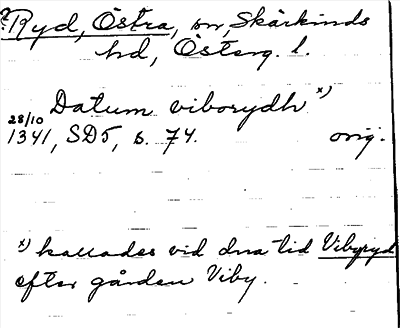 ? Ryd, Östra, sn, Skärkinds
hd, Österg. l.
Datum viborydh x)
28/10
1341, SD5, s. 74. orig.
x) kallades vid dna tid Vibyryd
efter gården Viby.